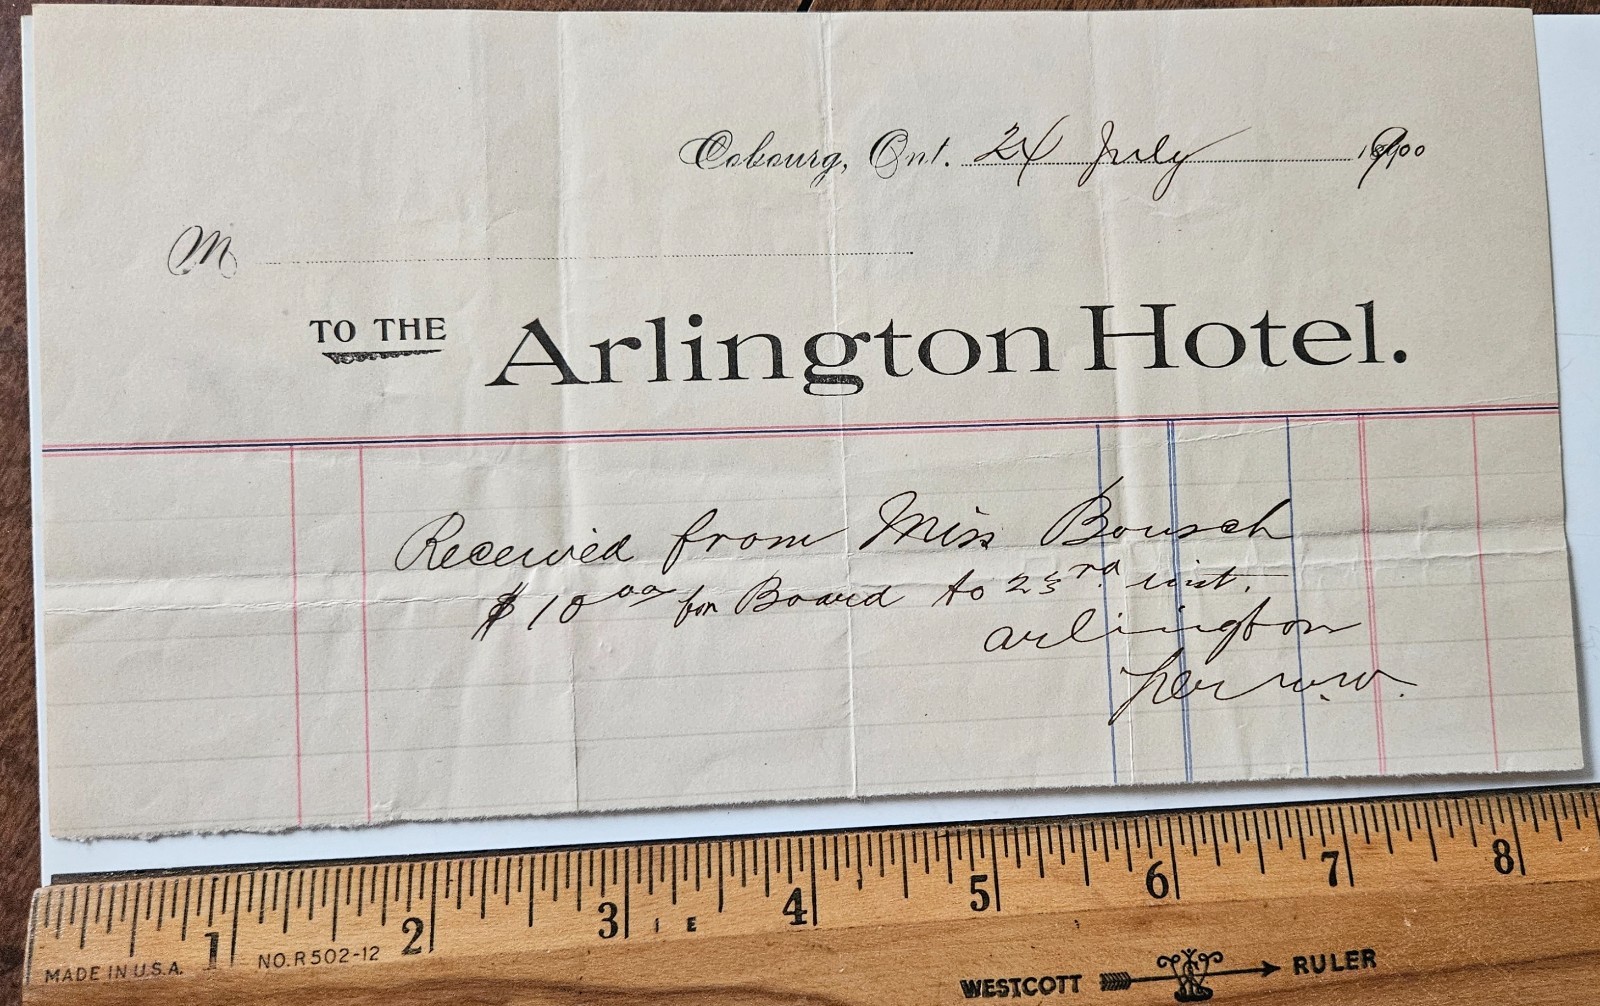 Cobourg, Ont. 24 July 1900
M
TO THE Arlington Hotel.
Received from Miss Bousch
$10 00 for Board to 23rd inst.
Arlington
per W.W.
1 2 3 4 5 6 7 8
I E
MADE IN U.S.A. NO. R502-12
WESTCOTT RULER